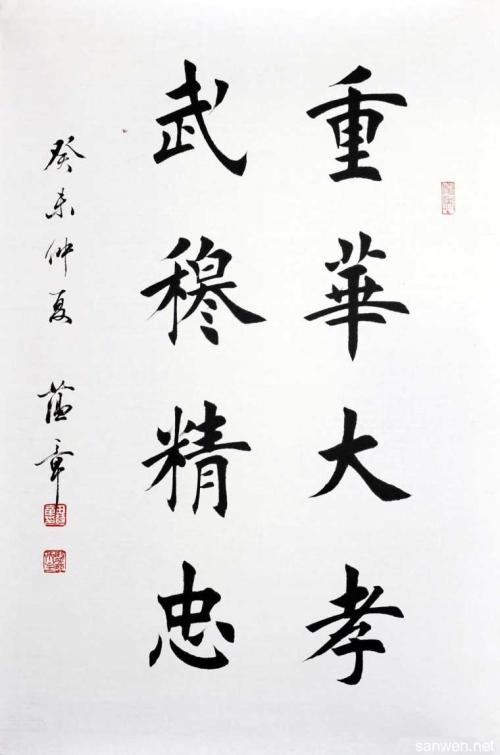 重華大孝
武穆精忠
癸未仲夏
蔭章
sanwen.net